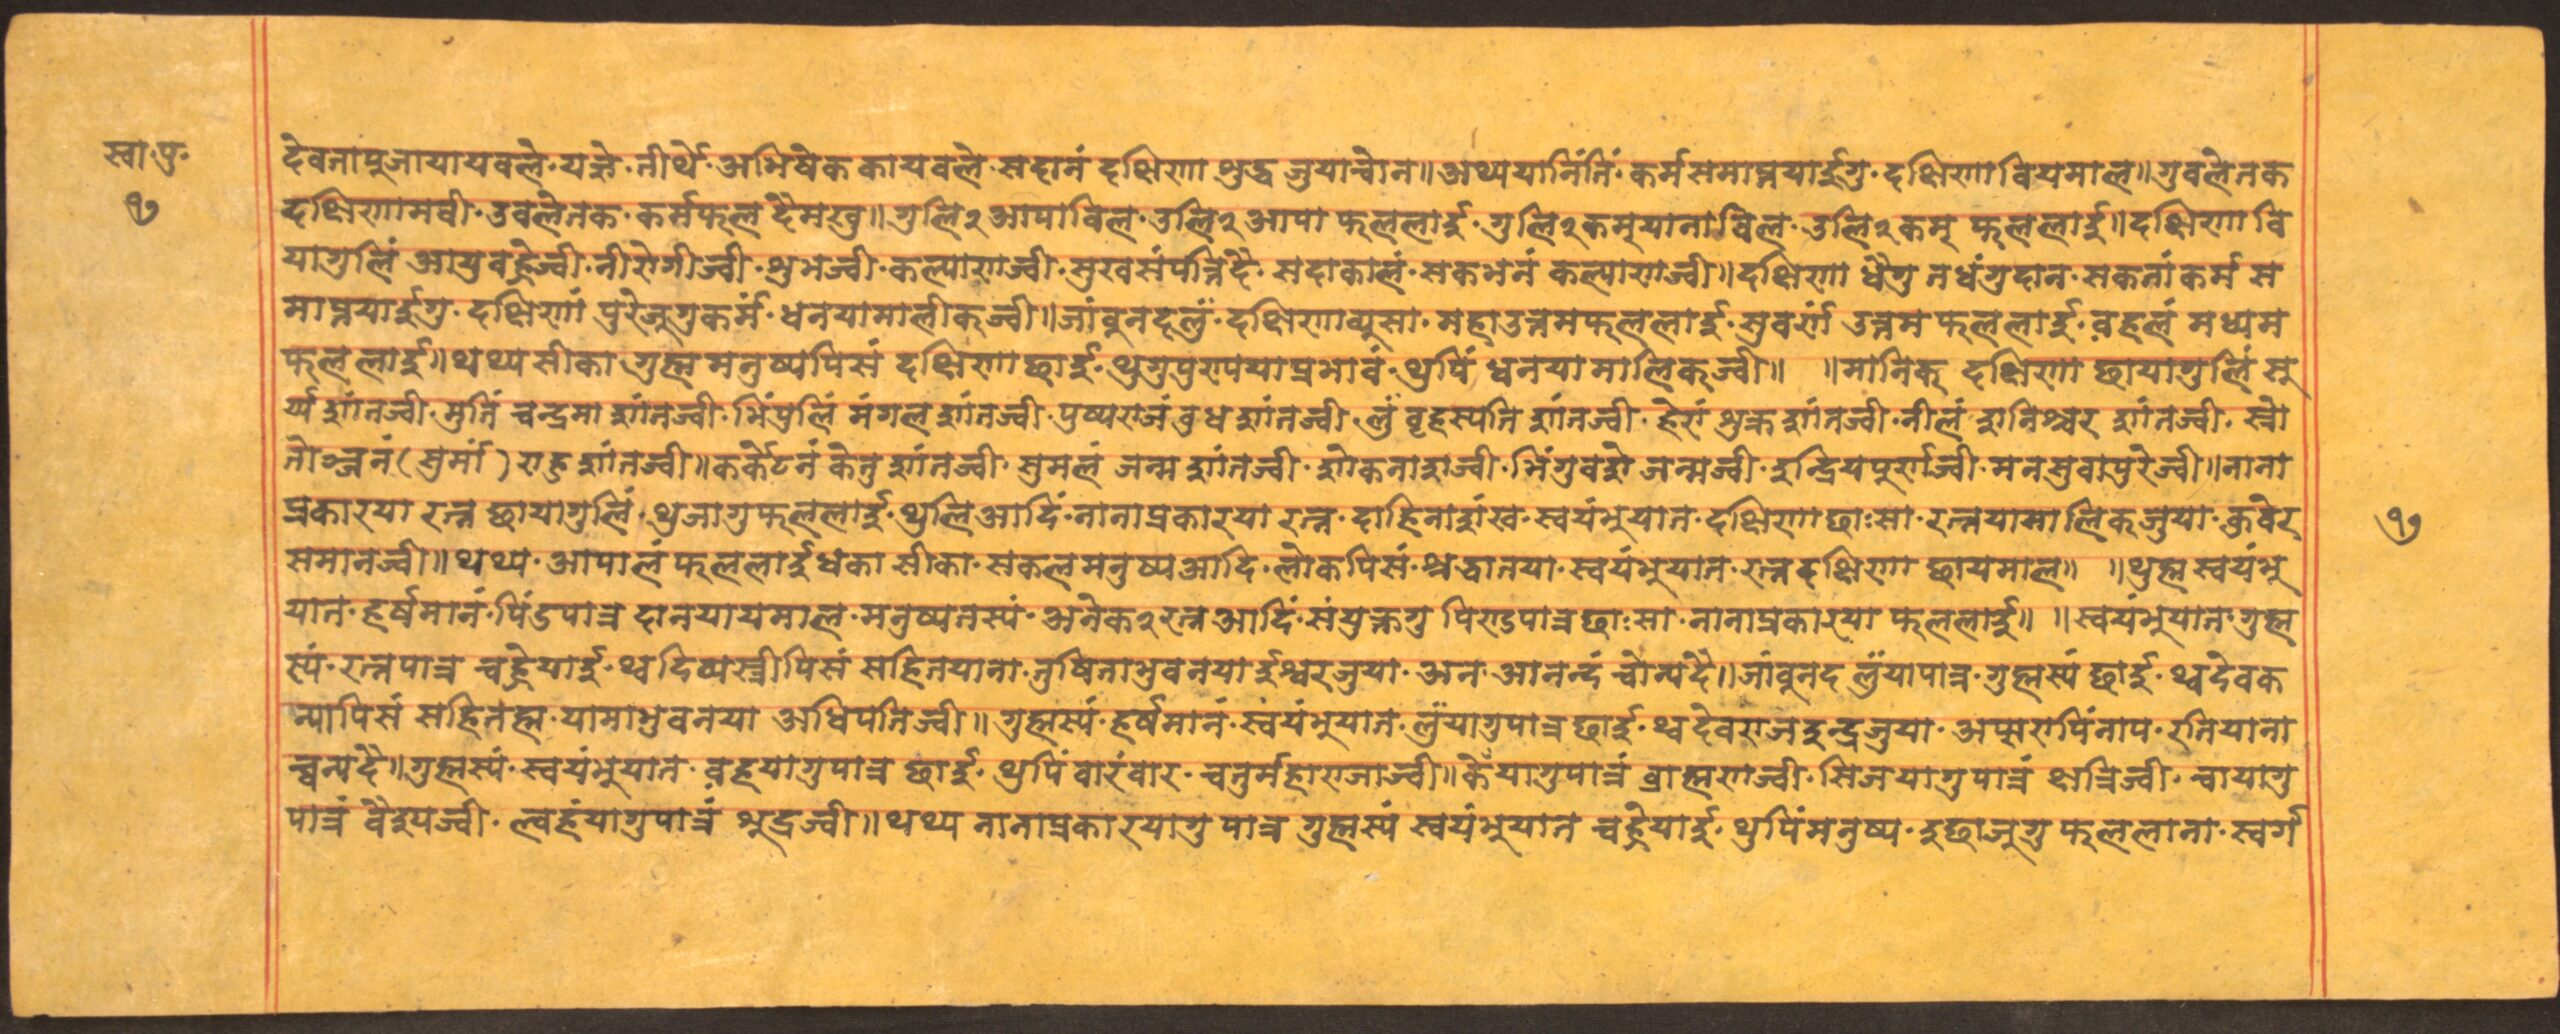 स्वा.पु. देवतापूजायायवले.यज्ञे.तीर्थे.अभिषेककायवले.सदानं दक्षिणा शुद्ध जुयाच्वोन॥अथ्ययानिंतिं.कर्मसमाप्तयाईगु.दक्षिणावियमाल॥गुवलेनक
७ दक्षिणामवी.उवलेनक.कर्मफल दैमखु॥गुलि२आपाविल.उलि२आपा फललाई.गुलि२कमयानाविल.उलि२कम फललाई॥दक्षिणा वि
यागुलिं आयुवह्रेज्वी.नीरोगीज्वी.शुभज्वी.कल्याणज्वी.सुखसंपत्तिदै.सदाकालं.सकभनं कल्याणज्वी॥दक्षिणा धैगु नधंगुदान.सकतां कर्म स
माप्तयाईगु.दक्षिणां पुरेजूगुकर्म.धनयामालीकज्वी॥जांवूनदलुं.दक्षिणाव्यूसा.महाउत्तमफललाई.सुवर्णं उत्तम फललाई.वहलं मध्यम
फललाई॥थथ्य सीका गुह्म मनुष्यपिसं दक्षिणा छाई.थुगुपुण्ययाप्रभावं.थुपिं धनयामालिकज्वी॥ ॥मानिक दक्षिणा छायागुलिं सू
र्य्य शांतज्वी.मुतिं चन्द्रमा शांतज्वी.भिंपुलिं मंगल शांतज्वी.पुष्पराजं वुध शांतज्वी लुं वृहस्पति शांतज्वी.हेरां शुक्र शांतज्वी.नीलं शनिश्चर शांतज्वी.स्रो
तोञ्जनं(सुर्मां)राहु शांतज्वी॥कर्केटनं केतु शांतज्वी.सुमलं जन्म शांतज्वी.शोकनाशज्वी.भिंगुवंशे जन्मज्वी.इन्द्रियपूर्णज्वी.मनसुवापुरेज्वी॥नाना
प्रकारया रत्न छायागुलिं.थुजागुफललाई.थुलिआदिं.नानाप्रकारया रत्न.दाहिनाशंख.स्वयंभुयात.दक्षिणाछाःसा.रत्नयामालिकजुया.कुवेर
७
समानज्वी॥थथ्य.आपालं फललाईधका सीका.सकलमनुष्यआदि.लोकपिसं.श्रद्धातया.स्वयंभुयात.रत्न दक्षिणा छायमाल॥ ॥थुह्म स्वयंभु
यात.हर्षमानं.पिंडपात्र दानयायमाल.मनुष्यतस्यं.अनेक२रत्न आदिं.संयुक्तगु पिण्डपात्रछाःसा.नानाप्रकारया फललाई॥ ॥स्वयंभुयात.गुह्म
स्यं.रत्नपात्र च्वह्रेयाई.थ्व दिव्यस्त्रीपिसं सहितयाना.तुषिताभुवनया ईश्वरजुया.अन.आनन्दं च्वोन्यदै॥जांवूनद लुंयापात्र.गुह्मस्यं छाई.थ्व देवक
न्यापिसं सहितह्म.यामाभुवनया अधिपतिज्वी॥गुह्मस्यं.हर्षमानं.स्वयंभुयात.लुंयागुपात्र छाई.थ्व देवराजइन्द्रजुया.अप्सरापिंनाप.रतियाना
च्वन्यदै॥गुह्मस्यं.स्वयंभुयात.वहयागुपात्र छाई.थुपिं वारंवार.चतुर्महाराजाज्वी॥कैंयागुपात्रं व्राह्मणज्वी.सिजयागुपात्रं क्षत्रिज्वी.चायागु
पात्रं वैश्यज्वी.ल्वहंयागुपात्रं शुद्रज्वी॥थथ्य नानाप्रकारयागु पात्र गुह्मस्यं स्वयंभुयात च्वह्रेयाई.थुपिंमनुष्य.इछाजूगु फललाना.स्वर्ग